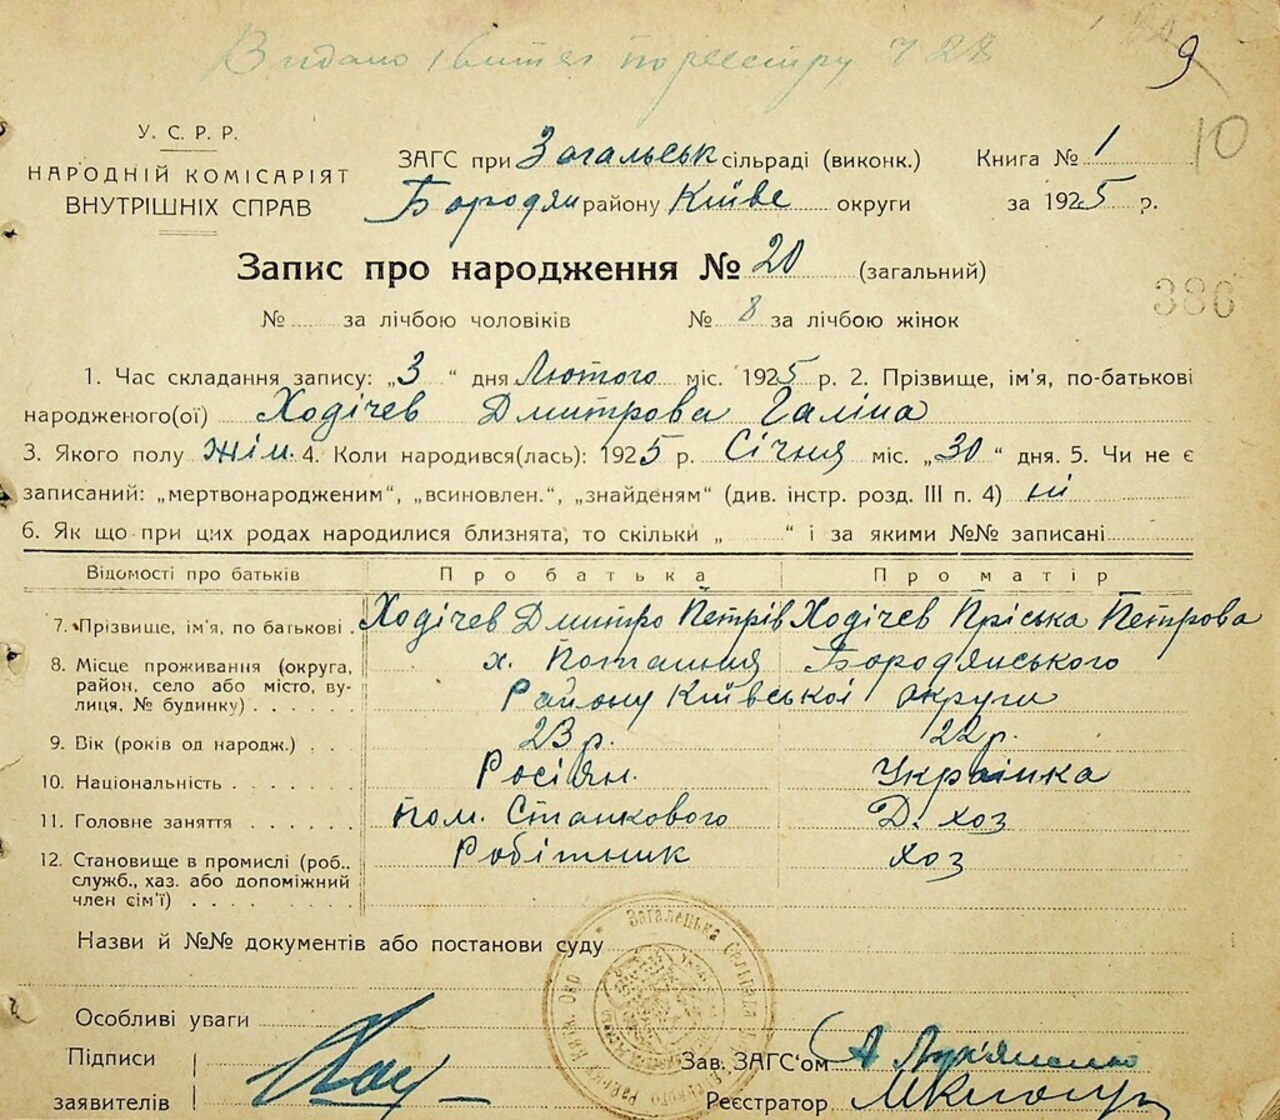 Видано по реєстру Ч 22
9
10
У. С. Р. Р.
НАРОДНІЙ КОМІСАРІЯТ
ВНУТРІШНІХ СПРАВ
ЗАГС при Загальськ сільраді (виконк.)
Бородян району Київс округи
Книга № 1
за 1925 р.
Запис про народження № 20 (загальний)
386
№ за лічбою чоловіків № 8 за лічбою жінок
1. Час складання запису: „3“ дня Лютого міс. 1925 р. 2. Прізвище, ім'я, по-батькові
народженого(ої) Ходічев Дмитрова Галіна
3. Якого полу жін. 4. Коли народився(лась): 1925 р. Січня міс. „30“ дня. 5. Чи не є
записаний: „мертвонародженим“, „всиновлен.“, „знайденям“ (див. інстр. розд. III п. 4) ні
6. Як що при цих родах народилися близнята, то скільки „ “ і за якими №№ записані
Відомості про батьків Про батька Про матір
7. Прізвище, ім'я, по батькові Ходічев Дмитро Петрів Ходічев Пріська Петрова
8. Місце проживання (округа, х. Поташня Бородянського
район, село або місто, ву-
лиця, № будинку) Району Київської округи
9. Вік (років од народж.) 23 р. 22 р.
10. Національність Росіян. Українка
11. Головне заняття пом. Станкового Д. хоз
12. Становище в промислі (роб., Робітник хоз
служб., хаз. або допоміжний
член сім'ї)
Назви й №№ документів або постанови суду
Загалецька Сельрада
Особливі уваги
Підписи
заявителів
Зав. ЗАГС'ом А Лук'яненко
Реєстратор